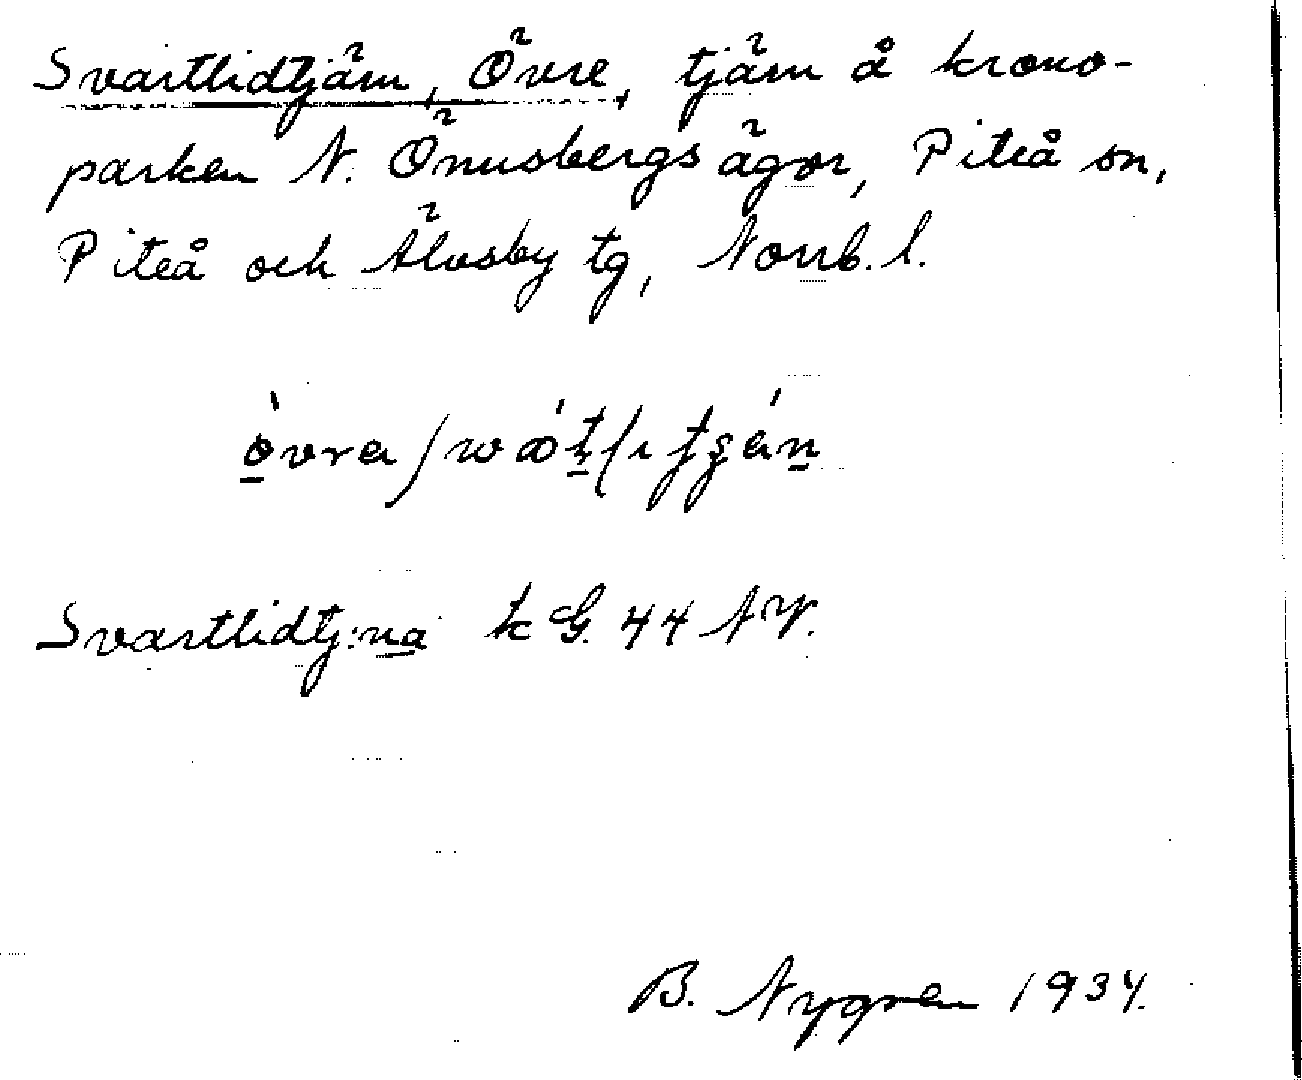 Svartlidtjärn, Övre, tjärn å krono-
parken N. Önusbergs ägor, Piteå sn,
Piteå och Älvsby tg, Norrb. l.
Svartlidtj:na k G. 44 NV.
B. Nygren 1934.